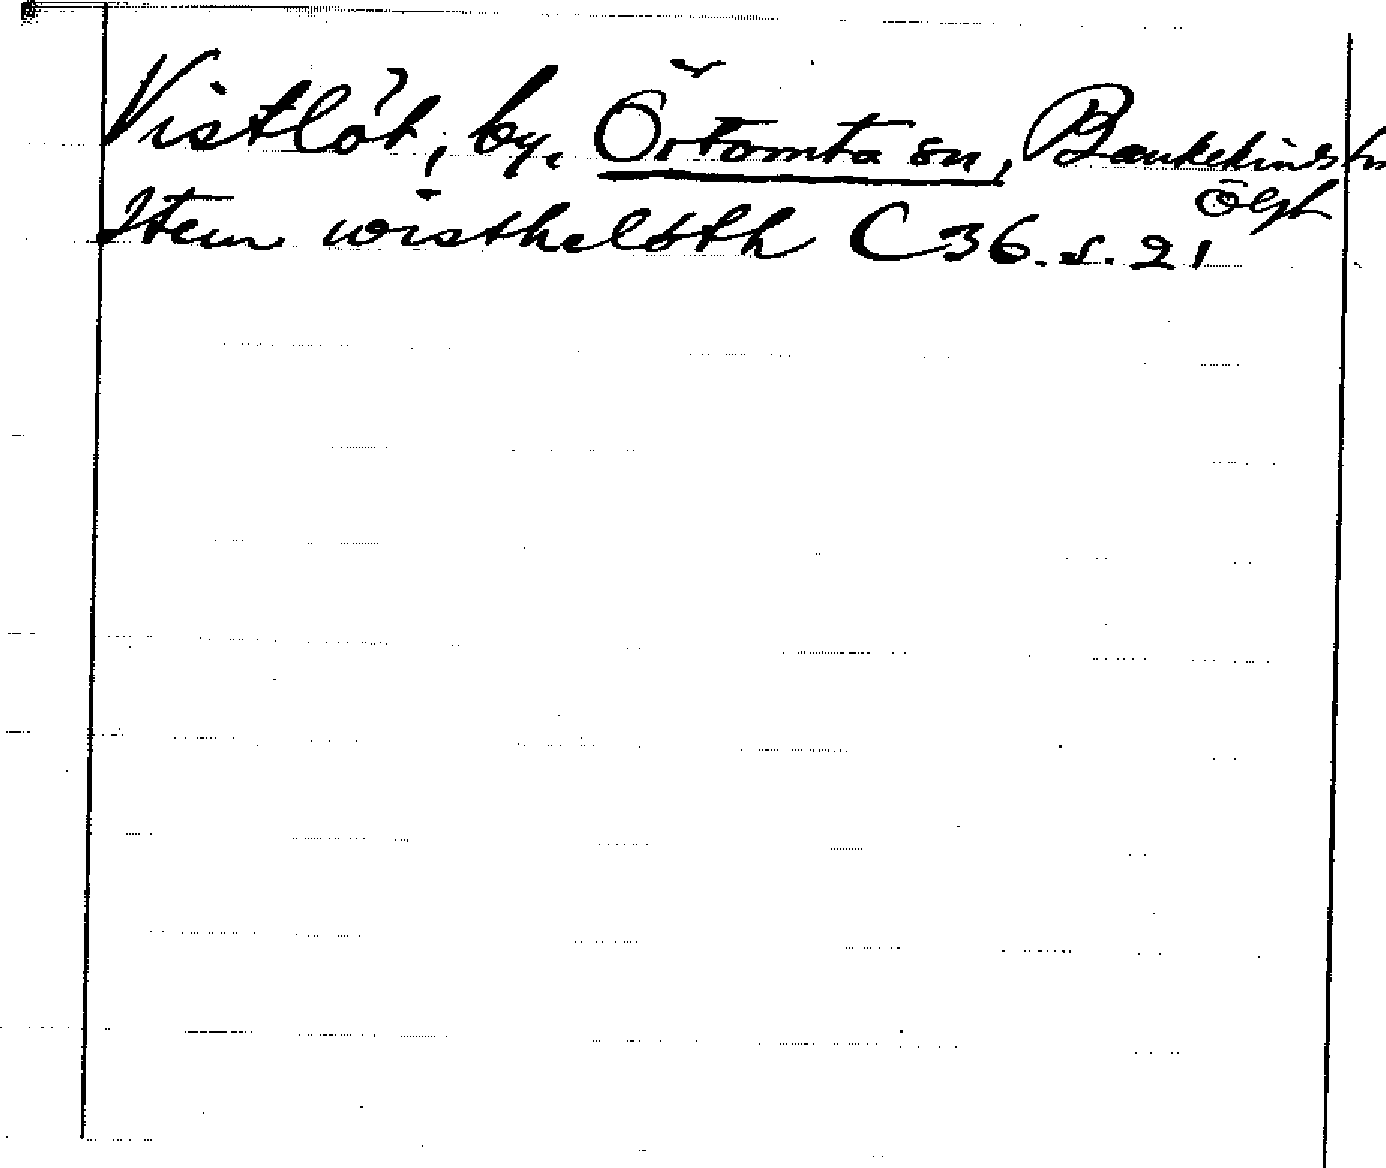 Vistlöt, by. Örtomta sn, Bankekinds hd
Ölgtl
Item wisthelöth C 36. s. 21